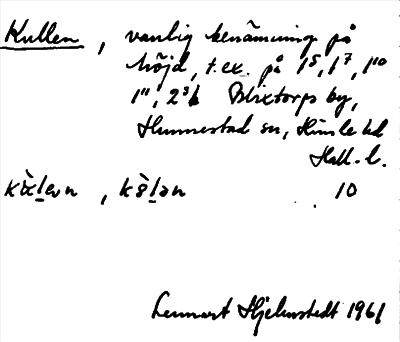 Kullen, vanlig benämning på
höjd, t.ex. på 1⁵, 1⁷, 1¹⁰
1¹¹, 2³⁶ Blixtorps by,
Hunnestad sn, Himle hd
Hall. l.
10
Lennart Hjelmstedt 1961